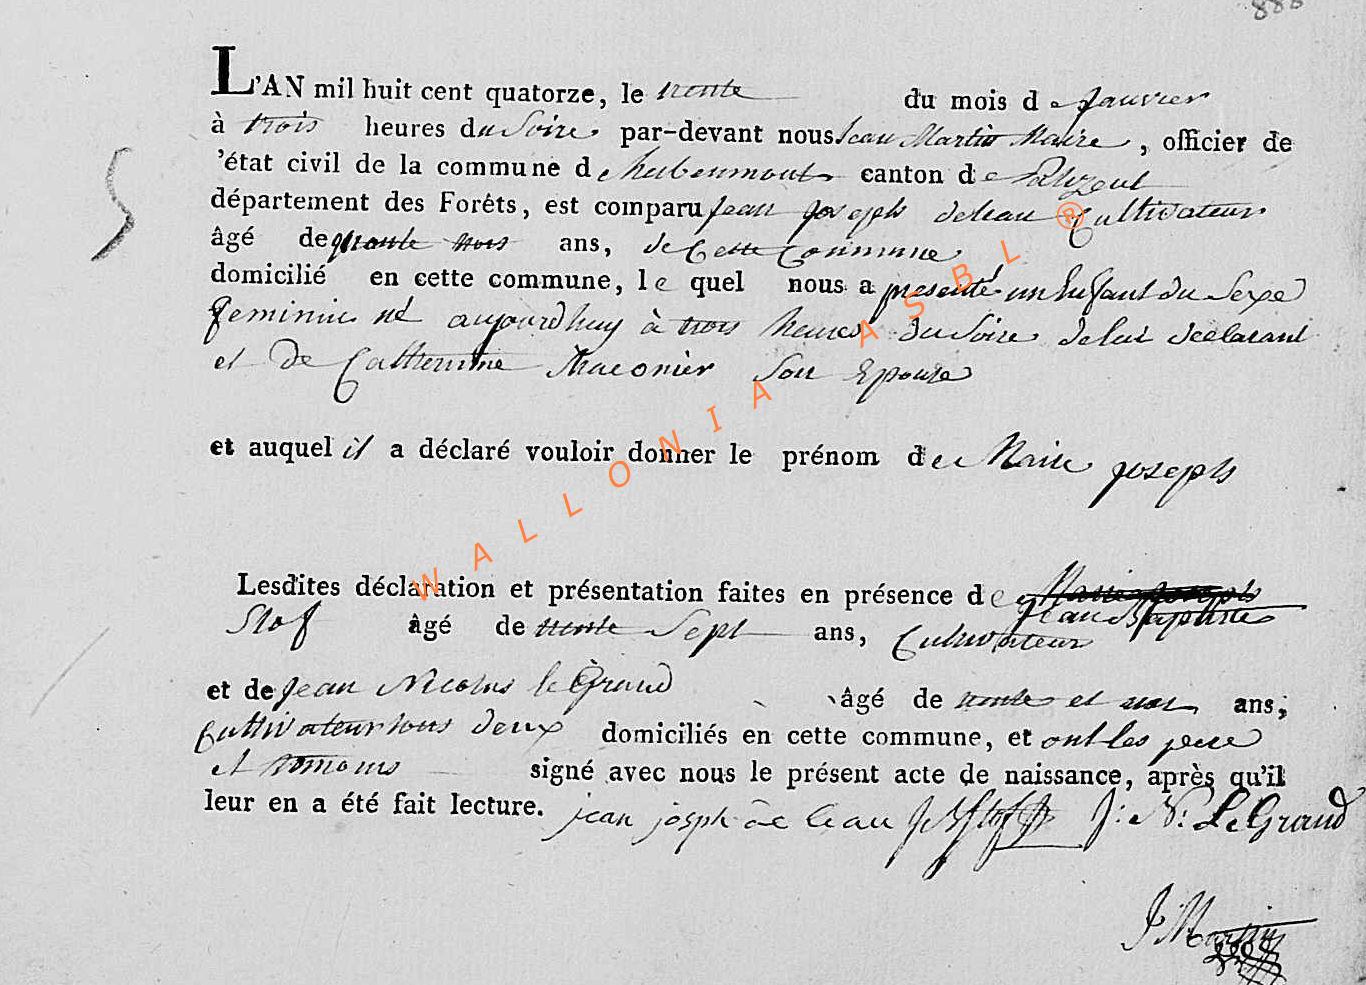 888
L'AN mil huit cent quatorze, le trente du mois de janvier
à trois heures du Soire par-devant nous Jean Martin Maire, officier de
'état civil de la commune d canton de
département des Forêts, est comparu jean joseph deleau Cultivateur
âgé de quante trois ans, de Cette Commune
domicilié en cette commune, le quel nous a presenté un Enfant du Sexe
feminin né aujourdhuy à trois heures du Soire de lui declarant
et De Catherinne Maconier Son Epouse
et auquel il a déclaré vouloir donner le prénom de Marie joseph
Lesdites déclaration et présentation faites en présence de Marie joseph
jean Baptiste
Slof âgé de trente Sept ans, Cultivateur
et de jean Nicolas le Grand âgé de trente et ans,
Cultivateur tous deux domiciliés en cette commune, et ont les pere
et temoins signé avec nous le présent acte de naissance, après qu'il
leur en a été fait lecture. jean josph de leau J B Slof J: N: Le Grand
J Martin
WALLONIA ASBL ®